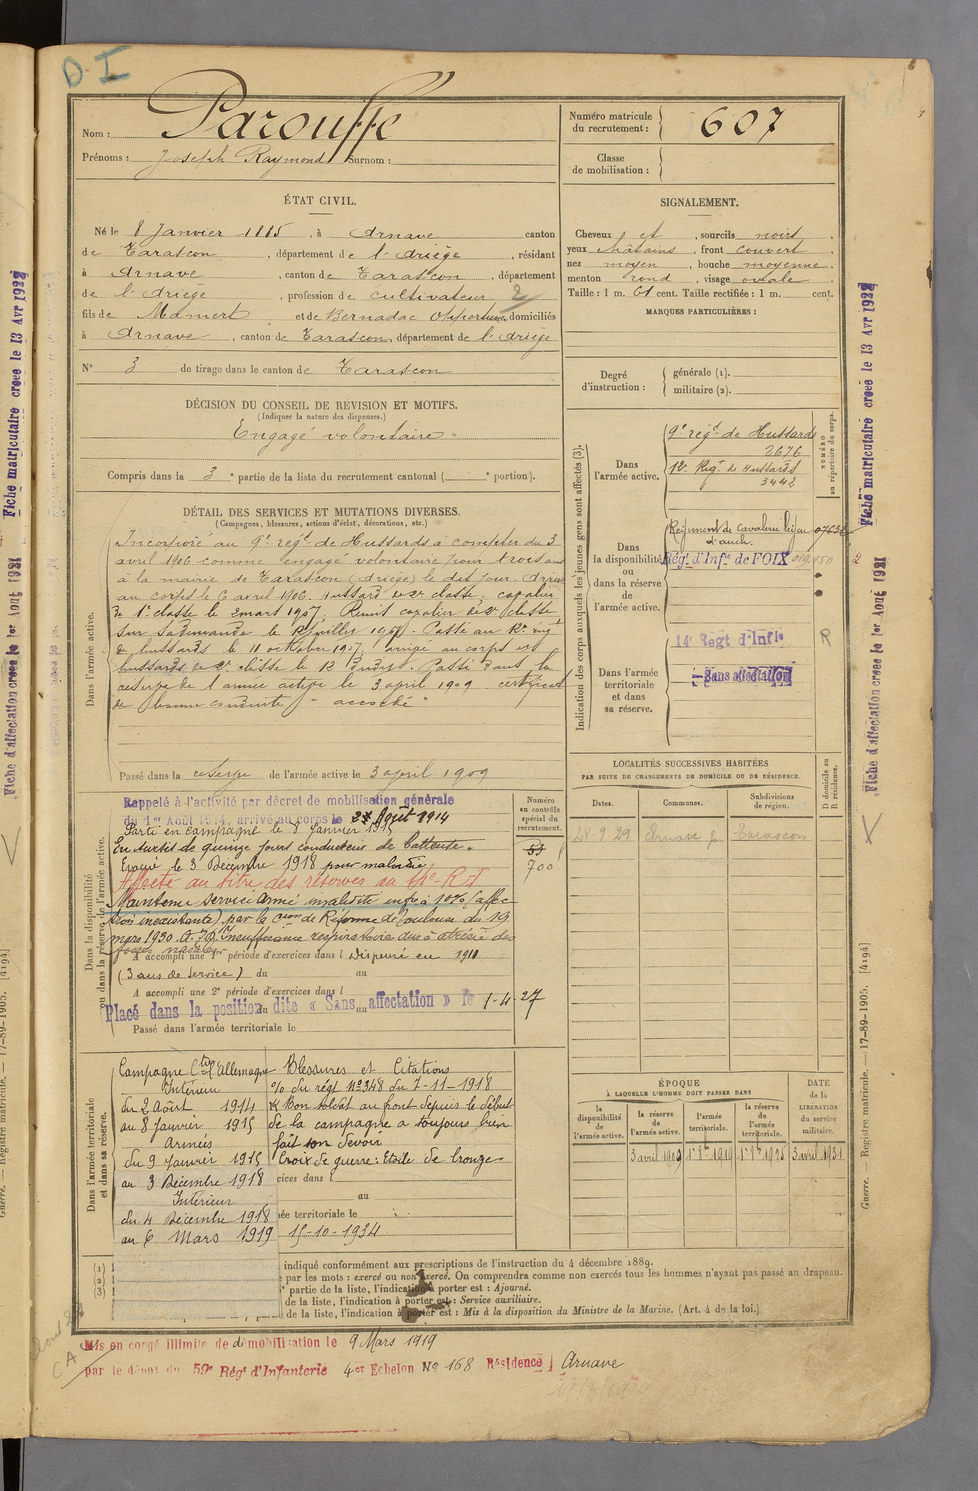 D. I
Nom : Parouffe
Prénoms : Joseph Raymond Surnom :
Numéro matricule du recrutement : 607
Classe de mobilisation :
ÉTAT CIVIL.
Né le 8 Janvier 1885, à Arnave canton
de Tarascon, département de l'Ariège, résidant
à Arnave, canton de Tarascon, département
de l'Ariège, profession de cultivateur 2
fils de Mamert et de Bernadac Opportune, domiciliés
à Arnave, canton de Tarascon, département de l'Ariège
N° 3 de tirage dans le canton de Tarascon
SIGNALEMENT.
Cheveux et, sourcils noirs,
yeux châtains, front couvert
nez moyen, bouche moyenne,
menton rond, visage ovale
Taille : 1 m. 61 cent. Taille rectifiée : 1 m. cent.
MARQUES PARTICULIÈRES :
Degré d'instruction : générale (1).
militaire (2).
DÉCISION DU CONSEIL DE REVISION ET MOTIFS.
(Indiquer la nature des dispenses.)
Engagé volontaire
Compris dans la 3e partie de la liste du recrutement cantonal ( e portion).
DÉTAIL DES SERVICES ET MUTATIONS DIVERSES.
(Campagnes, blessures, actions d'éclat, décorations, etc.)
Dans l'armée active.
Incorporé au 9e régt de Hussards à compter du 3
avril 1906 comme engagé volontaire pour trois ans
à la mairie de Tarascon (Ariège) le dit jour. Arrivé
au corps le 6 avril 1906. Hussard de 2e classe. cavalier
de 1e classe le 2 mars 1907. Remis cavalier de 2e classe
sur sa demande le juillet 1907. Passé au 12e rég
de hussards le 11 octobre 1907, arrivé au corps et
hussards de 2e classe le 12 dudit. Passé dans la
réserve de l'armée active le 3 avril 1909 certificat
de bonne conduite "accordé"
Passé dans la réserve de l'armée active le 3 avril 1909
Indication des corps auxquels les jeunes gens sont affectés (3).
Dans l'armée active.
9e régt de Hussards
2676
12e Régt de Hussards
3442
NUMÉRO au répertoire du corps.
Dans la disponibilité ou dans la réserve de l'armée active.
Régiment de Cavalerie légère 07632
d'auch.
Régt d'Infie de FOIX
Dans l'armée territoriale et dans sa réserve.
14e Regt d'Infie
Sans affectation
R
LOCALITÉS SUCCESSIVES HABITÉES
PAR SUITE DE CHANGEMENTS DE DOMICILE OU DE RÉSIDENCE.
Dates. Communes. Subdivisions de région. D domicile ou R résidence.
28-9 29 Arnave Tarascon
Dans la disponibilité ou dans la réserve de l'armée active.
Numéro au contrôle spécial du recrutement.
Rappelé à l'activité par décret de mobilisation générale
du 1er Août 1914, arrivé au corps le Août 1914
Parti en campagne le 8 Janvier 1915
En sursis de quinze jours conducteur de batteuse.
Evacué le 3 Décembre 1918 pour maladie
700
Affecté au titre des réserves au R.I
Maintenu service armé invalidité infre à 10% (affec-
tion inexistante) par la Cion de Réforme de Toulouse du 19
mars 1930. Insuffisance respiratoire due à atrésie des
fosses nasales
A accompli une 1re période d'exercices dans l Dispensé en 1911
(3 ans de service) du au
A accompli une 2e période d'exercices dans l
Placé dans la position dite « Sans affectation » le 1-4-27
du au
Passé dans l'armée territoriale le
Dans l'armée territoriale et dans sa réserve.
Campagne Ctre l'Allemagne
Intérieur
du 2 Août 1914
au 8 janvier 1915
Armées
du 9 Janvier 1915
au 3 Décembre 1918
Intérieur
du 4 Décembre 1918
au 6 Mars 1919
Blessures et Citations
% du régt N° 348 du 7-11-1918
« Bon soldat au front depuis le début
de la campagne a toujours bien
fait son devoir
Croix de guerre : Etoile de bronze
cices dans l
au
ée territoriale le
15-10-1934
ÉPOQUE
À LAQUELLE L'HOMME DOIT PASSER DANS
la disponibilité de l'armée active.
la réserve de l'armée active.
l'armée territoriale.
la réserve de l'armée territoriale.
DATE de la LIBÉRATION du service militaire.
3 avril 1909 1er 8bre 1919 1er 8bre 1925 3 avril 1931
(1) indiqué conformément aux prescriptions de l'instruction du 4 décembre 1889.
(2) par les mots : exercé ou non exercé. On comprendra comme non exercés tous les hommes n'ayant pas passé au drapeau.
(3) partie de la liste, l'indication à porter est : Ajourné.
de la liste, l'indication à porter est : Service auxiliaire.
de la liste, l'indication à porter est : Mis à la disposition du Ministre de la Marine. (Art. 4 de la loi.)
Mis en congé illimité de démobilisation le 9 Mars 1919
par le dépôt du 59e Régt d'Infanterie 4er Echelon No 168 Résidence Arnave
CA
Fiche matriculaire créée le 13 Avr 1922
Fiche d'affectation créée le 1er Août 1921
Fiche matriculaire créée le 13 Avr 1922
Fiche d'affectation créée le 1er Août 1921
Guerre. — Registre matricule. — 17-89-1905. [4194]
Guerre. — Registre matricule. — 17-89-1905. [4194]